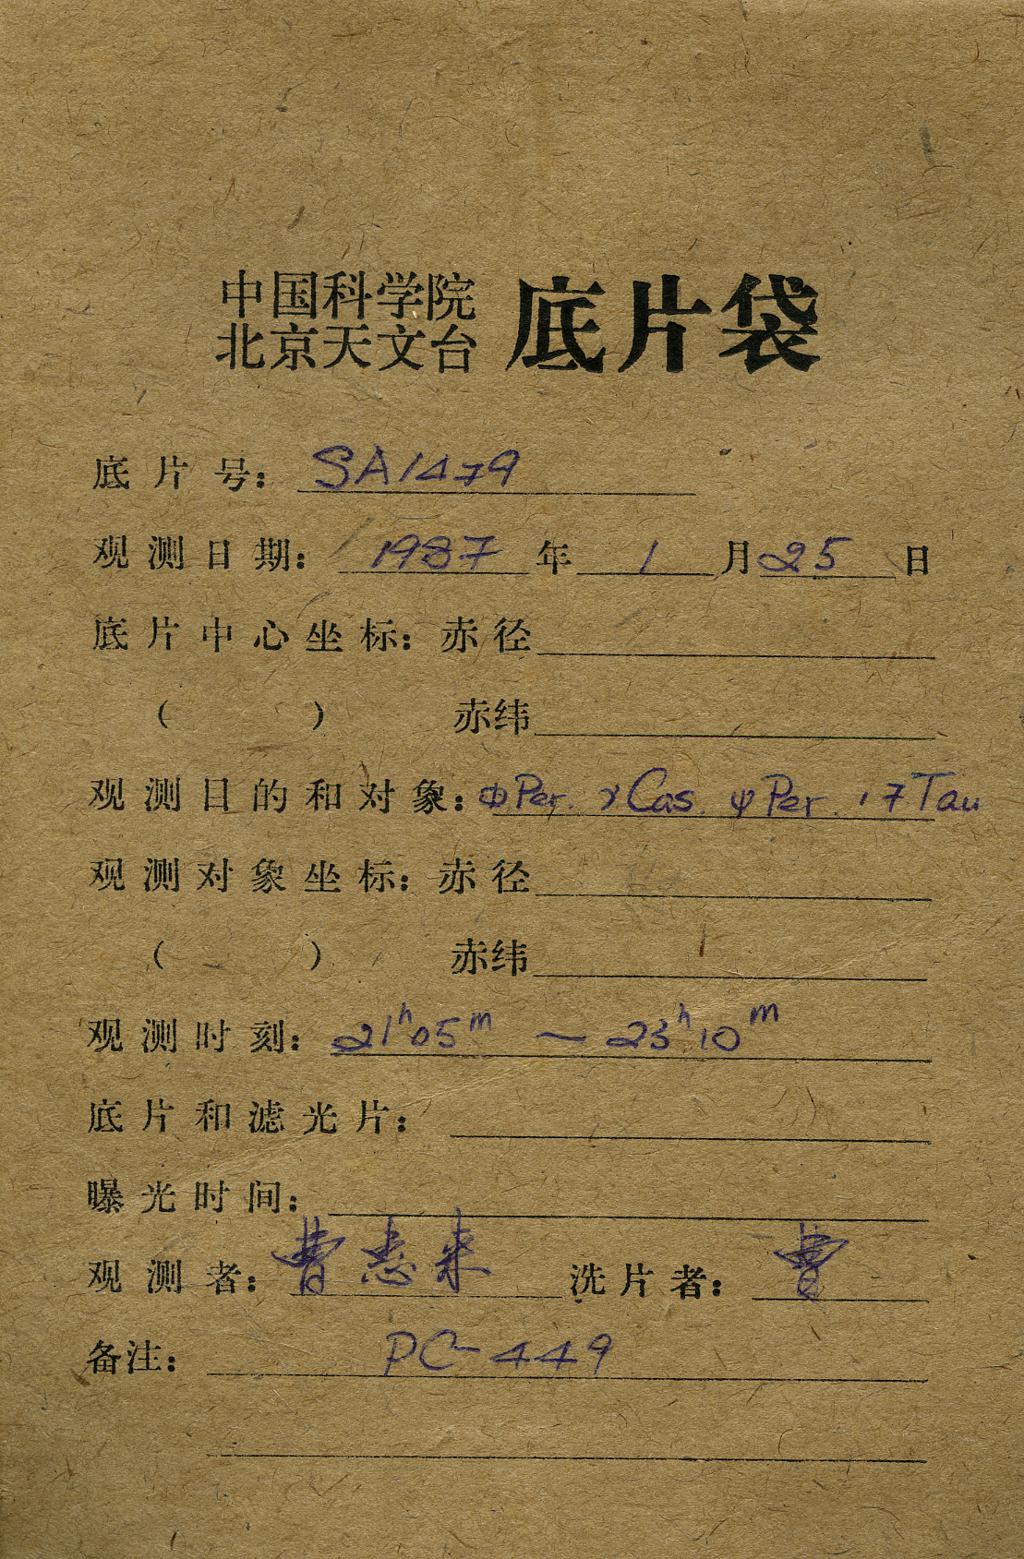 中国科学院
北京天文台 底片袋
底片号: SA1479
观测日期: 1987年 1月25日
底片中心坐标: 赤径
( ) 赤纬
观测目的和对象: φPer. γCas. ψPer. 17Tau
观测对象坐标: 赤径
( ) 赤纬
观测时刻: 21h05m — 23h10m
底片和滤光片:
曝光时间:
观测者: 曹志来 洗片者: 曹
备注: PC-449